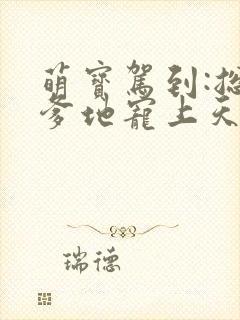 萌寶駕到:總
爹地寵上天
瑞德